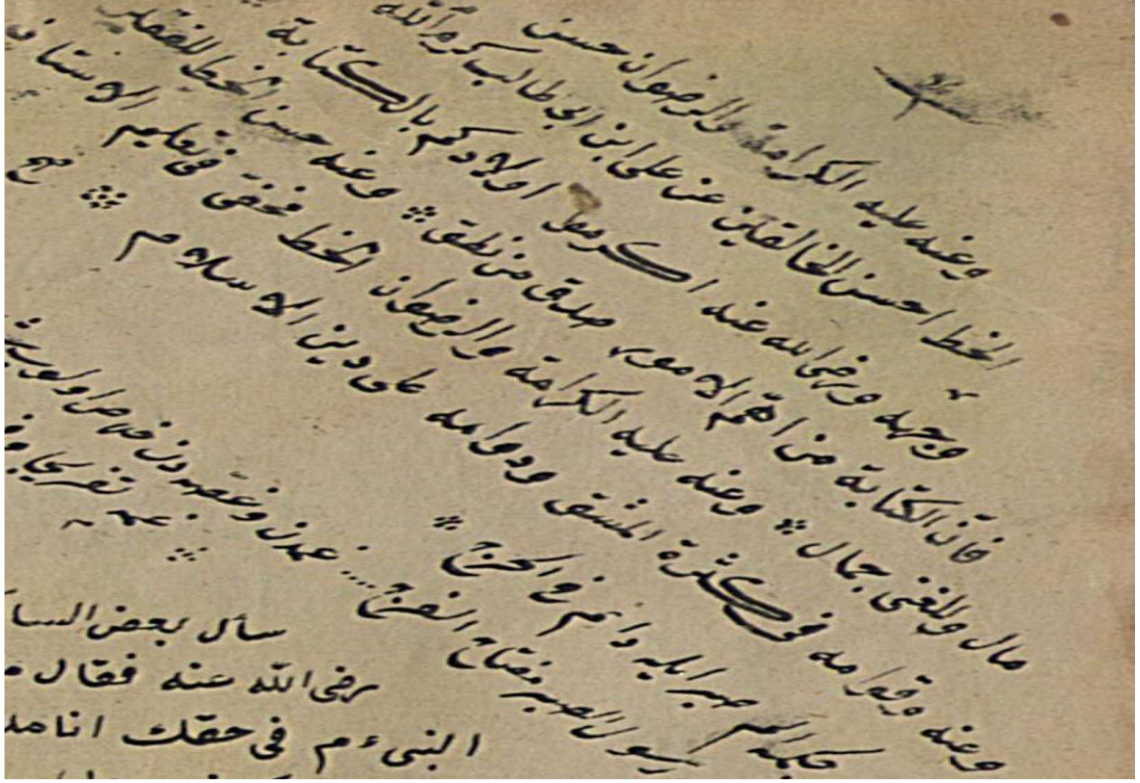 وعنه عليه الكرامة والرضوان حسن
الخط احسن الخالقين عن على ابن ابى طالب كرم الله
وجهه ورضى الله عنه اكرموا اولادكم بالكتابة
فان الكتابة من اهم الامور صدق من نطق وعنه حسن الخط للفقير
مال وللغنى جمال وعنه عليه الكرامة والرضوان الخط مخفى فى تعليم الاستاد
وعنه وقوامه فى كثرة المشق ودوامه على دين الاسلام
صبر ايله
الصبر مفتاح الفرج
سأل بعض السا
رضى الله عنه فقال
النبى ءم فى حقك انا مد